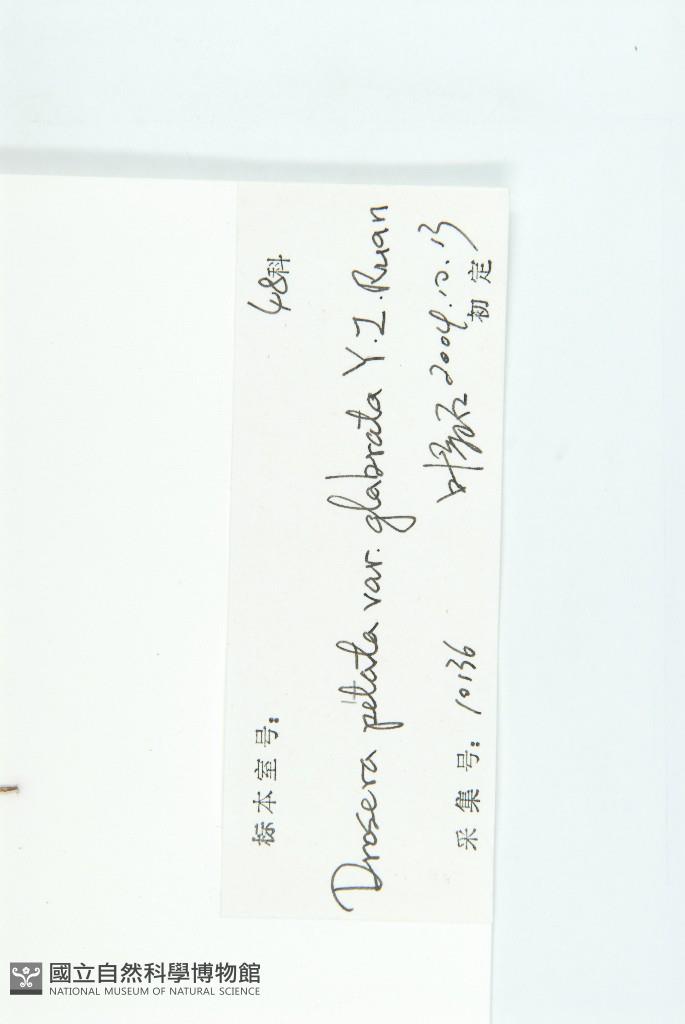 标本室号：　48科
Drosera peltata var. glabrata Y.Z.Ruan
2004.10.13
采集号：10136　初定
國立自然科學博物館
NATIONAL MUSEUM OF NATURAL SCIENCE